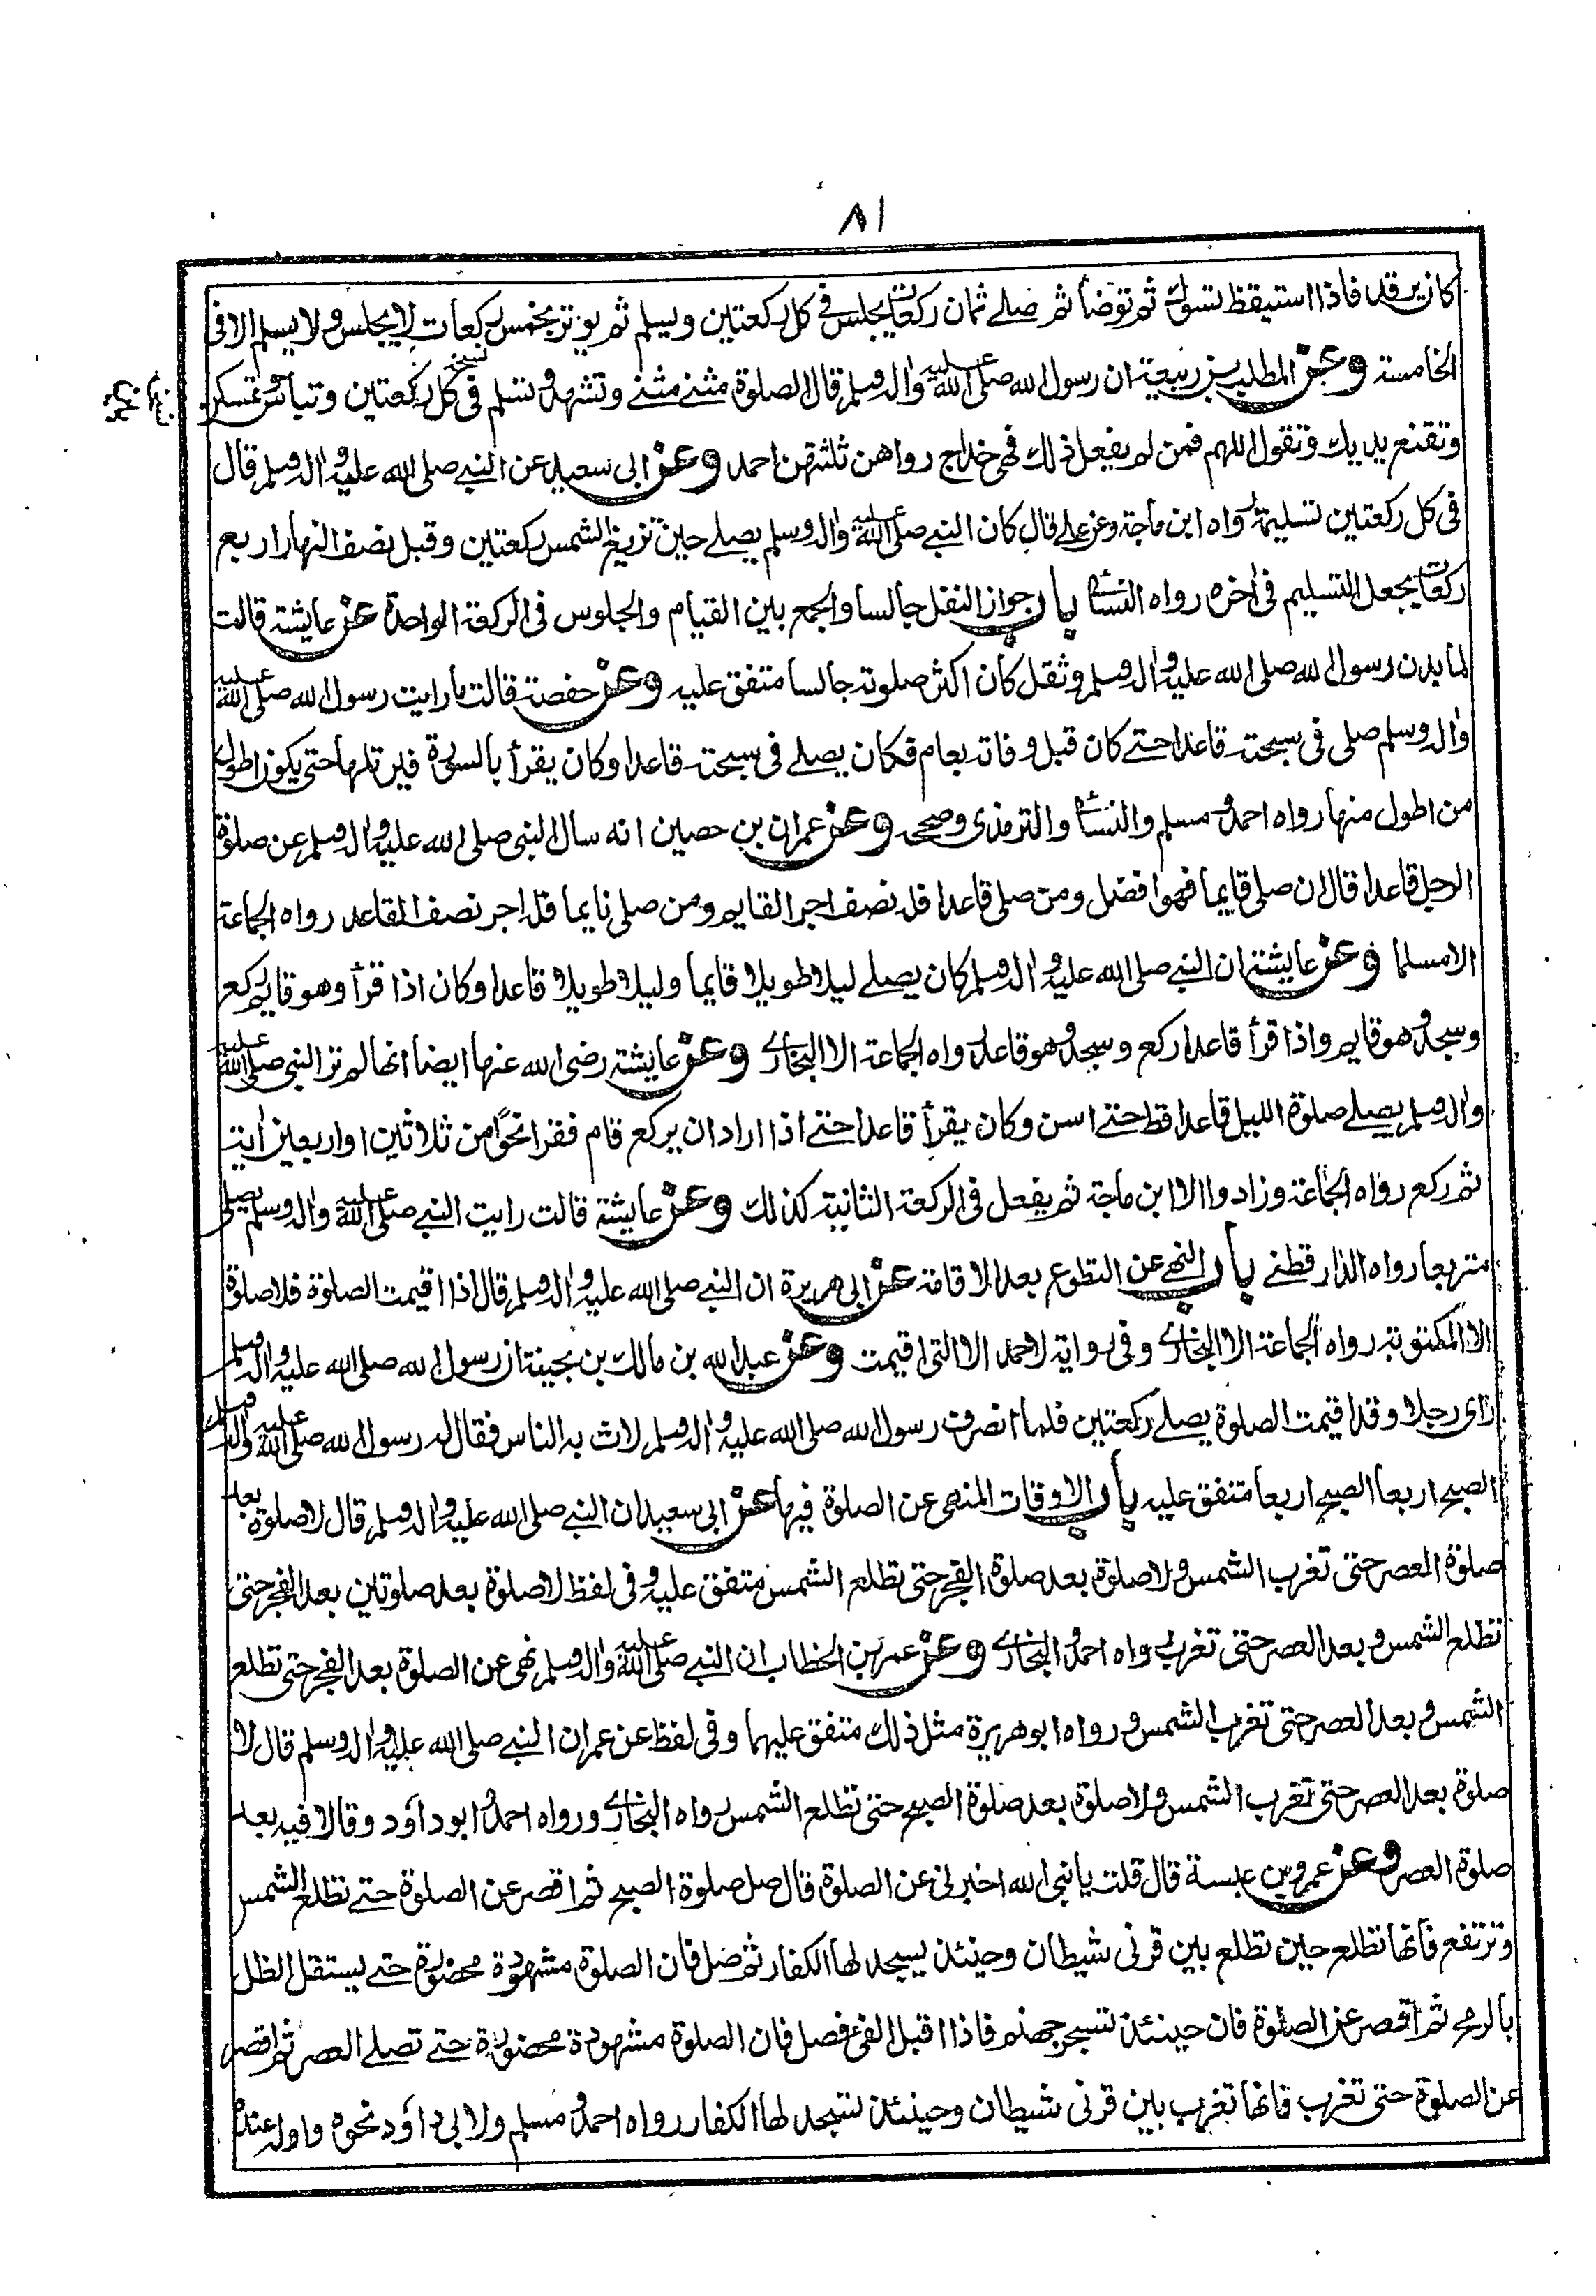 ٨١
كان يرقد فاذا استيقظ تسوك ثم توضأ ثم صلى ثمان ركعات يجلس فى كل ركعتين ويسلم ثم يوتر بخمس ركعات لا يجلس ولا يسلم الا فى
الخامسة وعن المطلب بن ربيعة ان رسول الله صلى الله عليه واله وسلم قال الصلوة مثنى مثنى وتشهد وتسلم فى كل ركعتين وتبأس وتمسكن
نسخة
وتقنع يديك وتقول اللهم فمن لم يفعل ذلك فهى خداج رواهن ثلثتهن احمد وعن ابى سعيد عن النبى صلى الله عليه واله وسلم قال
فى كل ركعتين تسليمة رواه ابن ماجة وعن على قال كان النبى صلى الله عليه واله وسلم يصلى حين تزيغ الشمس ركعتين وقبل نصف النهار اربع
ركعات يجعل التسليم فى اخره رواه النسائى باب جواز النفل جالسا والجمع بين القيام والجلوس فى الركعة الواحدة عن عايشة قالت
لما بدن رسول الله صلى الله عليه واله وسلم وثقل كان اكثر صلوته جالسا متفق عليه وعن حفصة قالت ما رايت رسول الله صلى الله عليه
واله وسلم صلى فى سبحته قاعدا حتى كان قبل وفاته بعام فكان يصلى فى سبحته قاعدا وكان يقرأ بالسورة فيرتلها حتى يكون اطول
من اطول منها رواه احمد ومسلم والنسائى والترمذى وصححه وعن عمران بن حصين انه سال النبى صلى الله عليه واله وسلم عن صلوة
الرجل قاعدا قال ان صلى قايما فهوا فضل ومن صلى قاعدا فله نصف اجر القايم ومن صلى نايما فله اجر نصف القاعد رواه الجماعة
الا مسلما وعن عايشة ان النبى صلى الله عليه واله وسلم كان يصلى ليلا طويلا قايما وليلا طويلا قاعدا وكان اذا قرأ وهو قايم ركع
وسجد وهو قايم واذا قرأ قاعدا ركع وسجد وهو قاعد رواه الجماعة الا البخارى وعن عايشة رضى الله عنها ايضا انها لم تر النبى صلى الله عليه
واله وسلم يصلى صلوة الليل قاعدا قط حتى اسن وكان يقرأ قاعدا حتى اذا اراد ان يركع قام فقرا نحوا من ثلاثين او اربعين اية
ثم ركع رواه الجماعة وزادوا الا ابن ماجة ثم يفعل فى الركعة الثانية كذلك وعن عايشة قالت رايت النبى صلى الله عليه واله وسلم يصلى
متربعا رواه الدارقطنى باب النهى عن التطوع بعد الاقامة عن ابى هريرة ان النبى صلى الله عليه واله وسلم قال اذا اقيمت الصلوة فلا صلوة
الا المكتوبة رواه الجماعة الا البخارى وفى رواية لاحمد الا التى اقيمت وعن عبد الله بن مالك بن بحينة ان رسول الله صلى الله عليه واله وسلم
راى رجلا وقد اقيمت الصلوة يصلى ركعتين فلما انصرف رسول الله صلى الله عليه واله وسلم لاث به الناس فقال له رسول الله صلى الله عليه واله وسلم
الصبح اربعا الصبح اربعا متفق عليه باب الاوقات المنهى عن الصلوة فيها عن ابى سعيد ان النبى صلى الله عليه واله وسلم قال لا صلوة بعد
صلوة العصر حتى تغرب الشمس ولا صلوة بعد صلوة الفجر حتى تطلع الشمس متفق عليه وفى لفظ لا صلوة بعد صلوتين بعد الفجر حتى
تطلع الشمس وبعد العصر حتى تغرب رواه احمد والبخارى وعن عمر بن الخطاب ان النبى صلى الله عليه واله وسلم نهى عن الصلوة بعد الفجر حتى تطلع
الشمس وبعد العصر حتى تغرب الشمس ورواه ابو هريرة مثل ذلك متفق عليهما وفى لفظ عن عمر ان النبى صلى الله عليه واله وسلم قال لا
صلوة بعد العصر حتى تغرب الشمس ولا صلوة بعد صلوة الصبح حتى تطلع الشمس رواه البخارى ورواه احمد وابو داود وقالا فيه بعد
صلوة العصر وعن عمرو بن عبسة قال قلت يا نبى الله اخبرنى عن الصلوة قال صل صلوة الصبح ثم اقصر عن الصلوة حتى تطلع الشمس
وترتفع فانها تطلع حين تطلع بين قرنى شيطان وحينئذ يسجد لها الكفار ثم صل فان الصلوة مشهودة محضورة حتى يستقل الظل
بالرمح ثم اقصر عن الصلوة فان حينئذ تسجر جهنم فاذا اقبل الفئ فصل فان الصلوة مشهودة محضورة حتى تصلى العصر ثم اقصر
عن الصلوة حتى تغرب فانها تغرب بين قرنى شيطان وحينئذ تسجد لها الكفار رواه احمد ومسلم ولابى داود نحوه واوله عنده